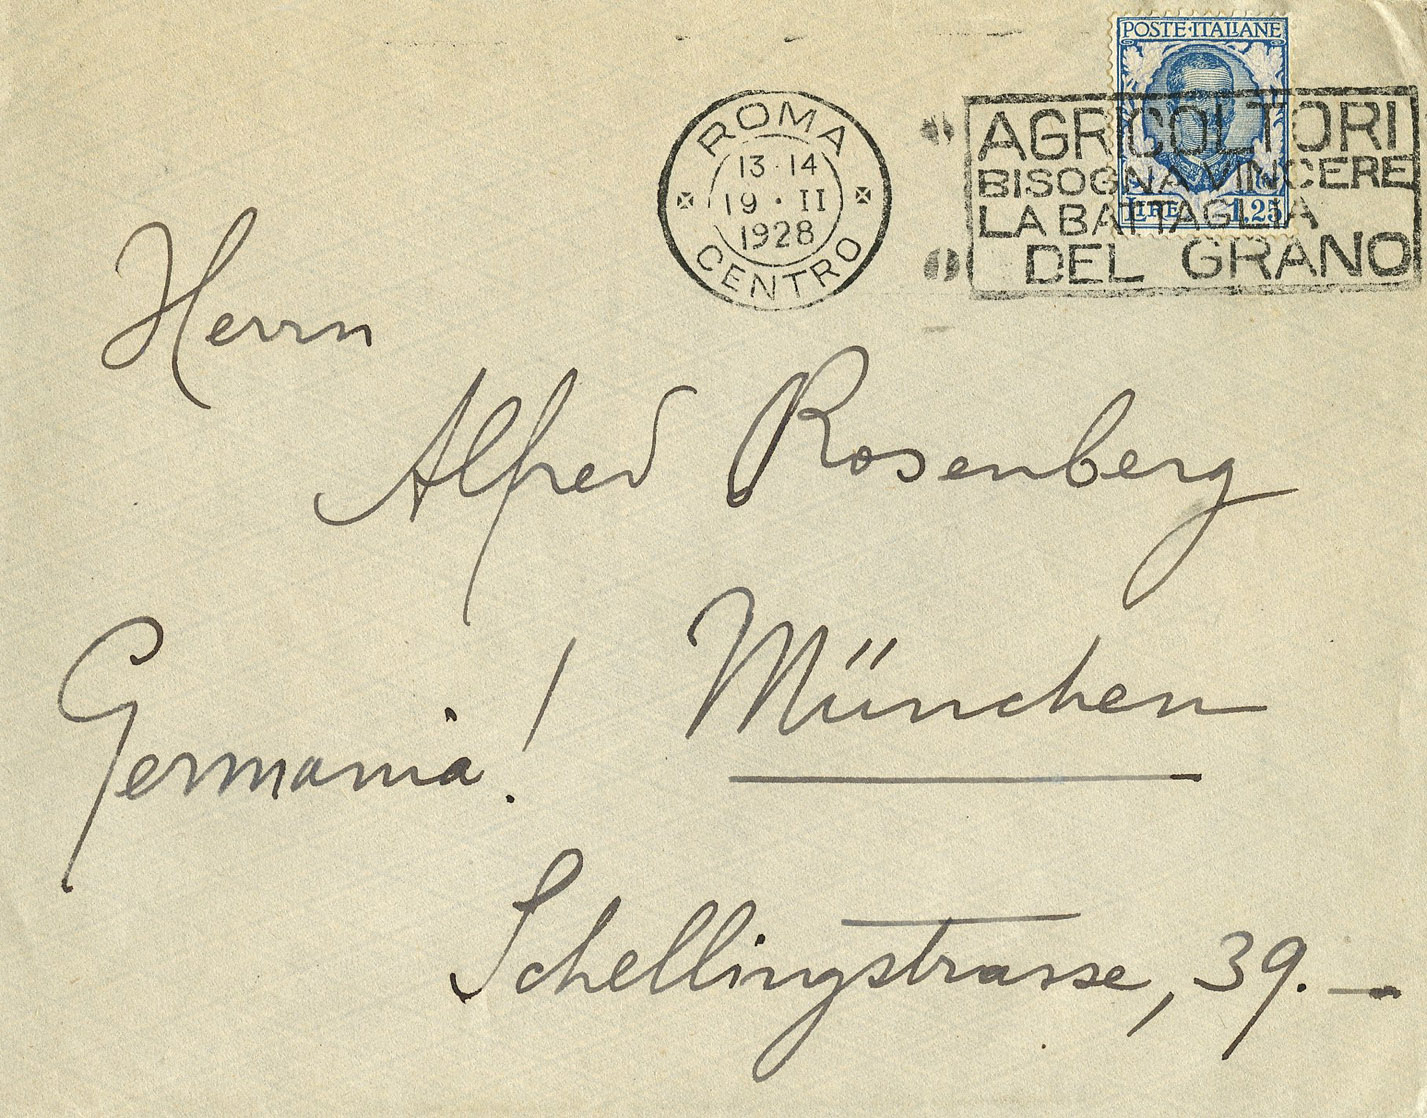 POSTE·ITALIANE
LIRE 1,25
ROMA
13·14
19·II
1928
CENTRO
AGRICOLTORI
BISOGNA VINCERE
LA BATTAGLIA
DEL GRANO
Herrn
Alfred Rosenberg
München
Germania!
Schellingstrasse, 39.—